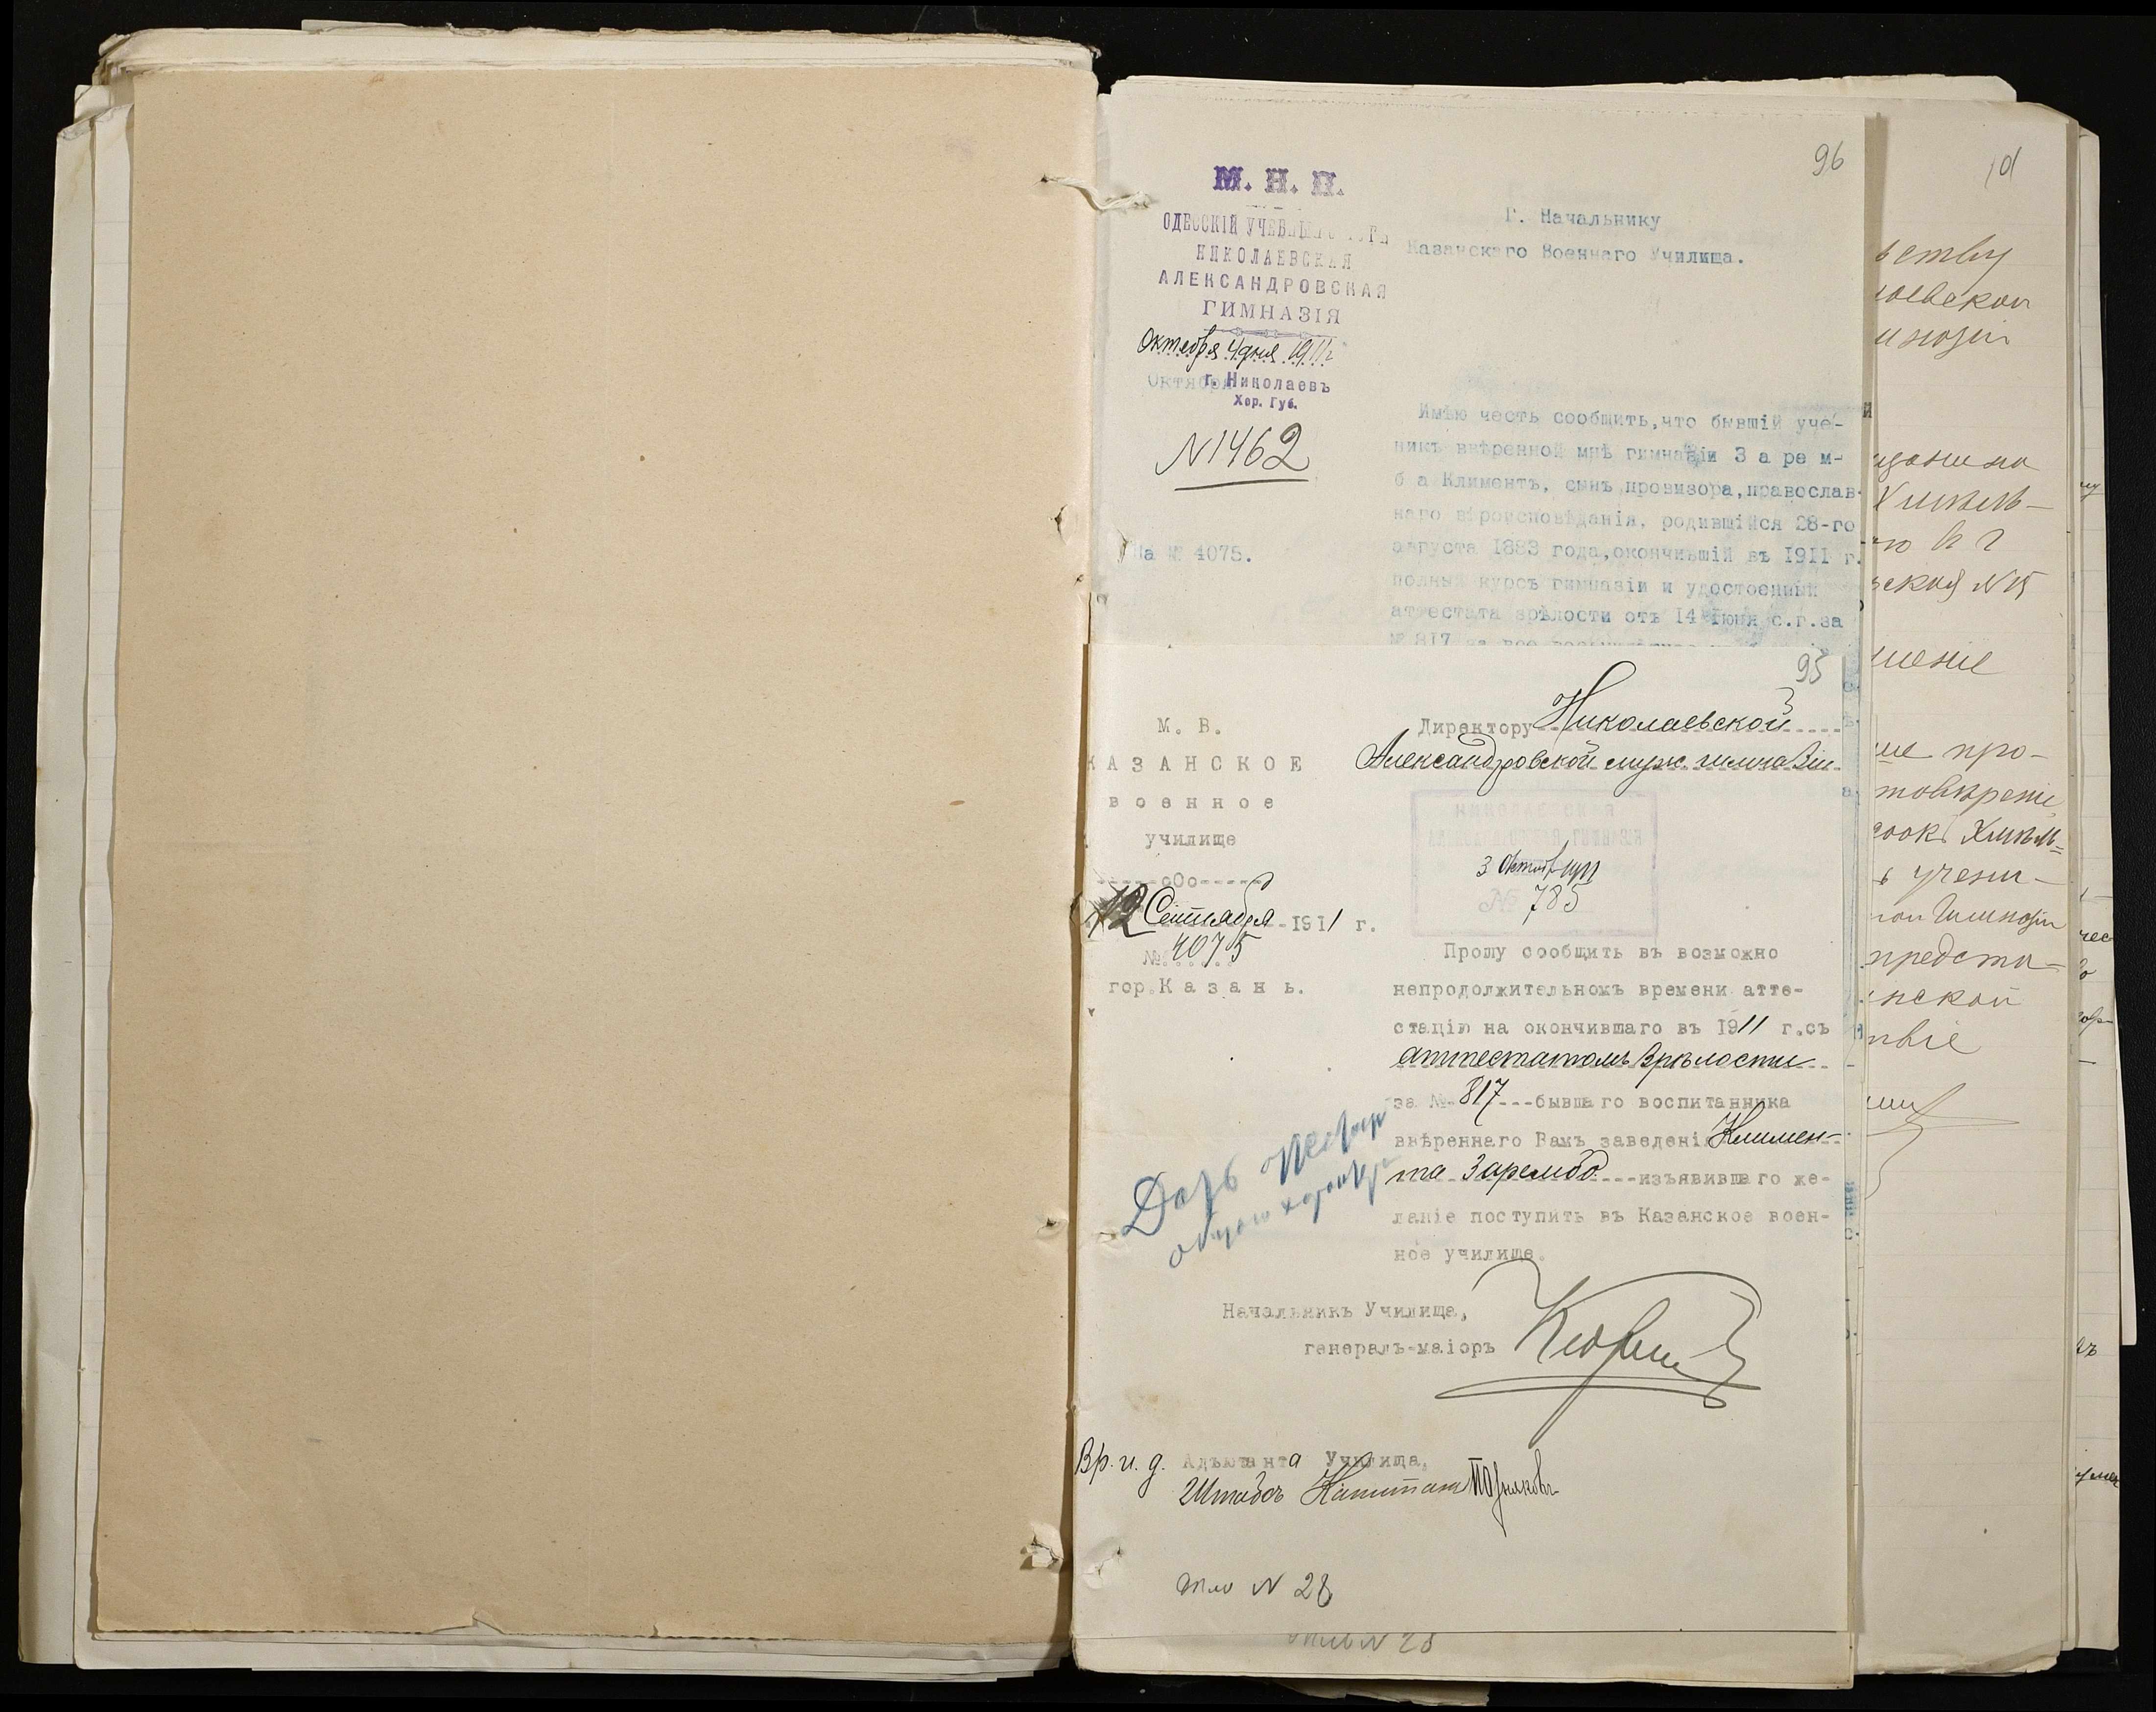 96
М. Н. П.
ОДЕССКІЙ
НИКОЛАЕВСКАЯ
АЛЕКСАНДРОВСКАЯ
ГИМНАЗІЯ
Октября 4 дня 1911 г.
Октября
г. Николаевъ
Хер. Губ.
N 1462
На № 4075.
Г. Начальнику
Казанскаго Военнаго Училища.
Имѣю честь сообщить, что бывшій уче-
никъ ввѣренной мнѣ гимназіи З а р е м-
б а Климентъ, сынъ провизора, православ-
наго вѣроисповѣданія, родившійся 28-го
августа 1883 года, окончившій въ 1911 г.
полный курсъ гимназіи и удостоенный
аттестата зрѣлости отъ 14 Іюня с.г. за
№ 817 за все
95
М. В.
КАЗАНСКОЕ
военное
училище
-----о0о-----
12 Сентября 1911 г.
№ 4075
гор. Казань.
Директору Николаевской
Александровской муж. гимназіи
НИКОЛАЕВСКАЯ
АЛЕКСАНДРОВСКАЯ ГИМНАЗІЯ
3 Октяб 1911
№ 785
Прошу сообщить въ возможно
непродолжительномъ времени атте-
стацію на окончившаго въ 1911 г. съ
аттестатомъ зрѣлости
за № 817 ---бывшаго воспитанника
ввѣреннаго Вамъ заведенія Климен-
та Зарембо ---изъявившаго же-
ланіе поступить въ Казанское воен-
ное училище.
Дать
Начальникъ Училища,
генералъ-маіоръ
Вр. и. д. Адъютанта Училища,
Штабсъ Капитанъ Позняковъ
N 28
N 28
ству
N 15
ніе
про-
Хмѣль=
предста-